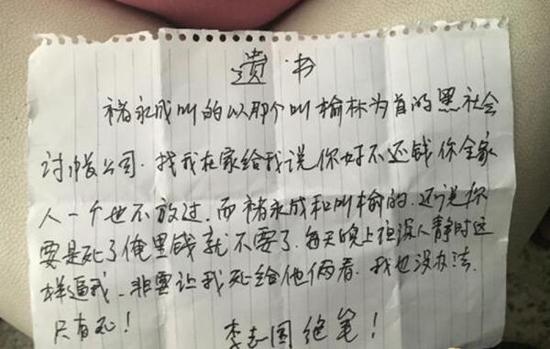 遗书
褚永成叫的以那个叫榆林为首的黑社会
讨账公司.找我在家给我说你好不还钱你全家
人一个也不放过.而褚永成和叫榆的.还说你
要是死了俺里钱就不要了.每天晚上担深人静时这
样逼我.非要让我死给他俩看.我也没办法.
只有死!
李志国绝笔!